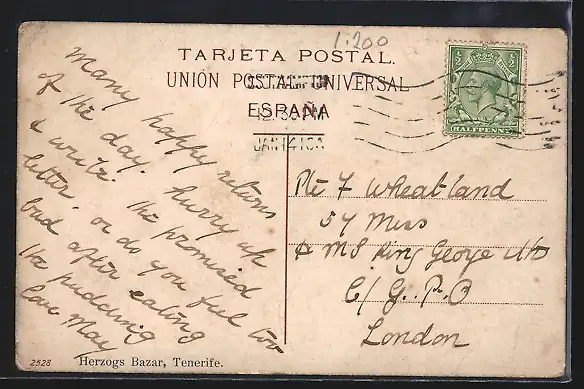 1:200
TARJETA POSTAL.
UNIÓN POSTAL UNIVERSAL
ESPAÑA
12.30 PM
JAN 14
HALFPENNY
Many happy returns
of the day. Hurry up
& write the promised
letter. or do you feel too
bad after eating
the pudding
love May
Pte F Wheatland
57 Mess
H M S King George Vth
C/ G.P.O
London
2528 Herzogs Bazar, Tenerife.